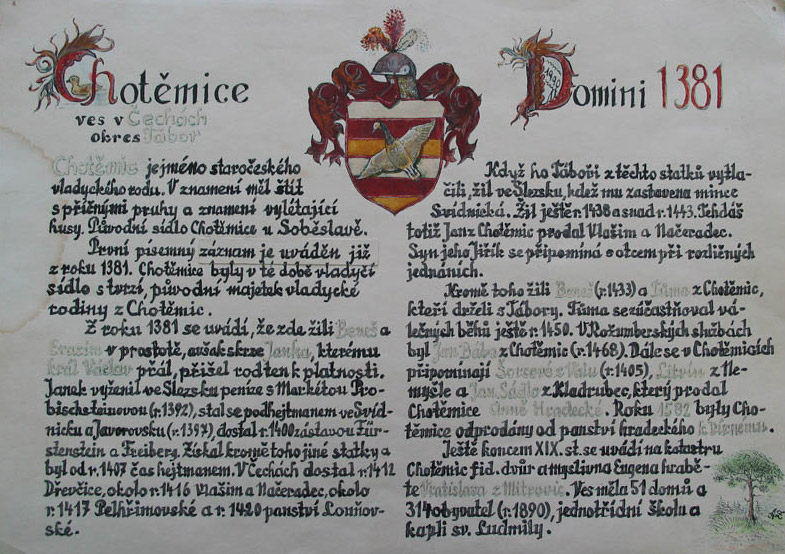 Chotěmice
ves v Čechách
okres Tábor
Chotěmic je jméno staročeského
vladyckého rodu. V znamení měl štít
s příčnými pruhy a znamení vylétající
husy. Původní sídlo Chotěmice u Soběslavě.
První písemný záznam je uváděn již
z roku 1381. Chotěmice byly v té době vladyčí
sídlo s tvrzí, původní majetek vladycké
rodiny z Chotěmic.
Z roku 1381 se uvádí, že zde žili Beneš a
Erazim v prostotě, avšak skrze Janka, kterému
král Václav přál, přišel rod ten k platnosti.
Janek vyženil ve Slezsku peníze s Markétou Pro-
bischsteinovou (r.1392), stal se podhejtmanem ve Svíd-
nicku a Javorovsku (r.1397), dostal r.1400 zástavou Für-
stenstein a Freiberg. Získal kromě toho jiné statky a
byl od r.1407 čas hejtmanem. V Čechách dostal r.1412
Dřevčice, okolo r.1416 Vlašim a Načeradec, okolo
r.1417 Pelhřimovské a r. 1420 panství Louňov-
ské.
Domini 1381
1990
Když ho Táboři z těchto statků vytla-
čili, žil ve Slezsku, kdež mu zastavena mince
Svídnická. Žil ještě r.1438 a snad r.1443. Tehdáš
totiž Jan z Chotěmic prodal Vlašim a Načeradec.
Syn jeho Jiřík se připomíná s otcem při rozličných
jednáních.
Kromě toho žili Beneš (r.1433) a Tůma z Chotěmic,
kteří drželi s Tábory. Tůma se zúčastňoval vá-
lečných běhů ještě r.1450. V Rožumberských službách
byl Jan Bába z Chotěmic (r.1468). Dále se v Chotěmicích
připomínají z Valu (r.1405), Litvín z Ne-
myšle a Jan Sádlo z Kladrubec, který prodal
Chotěmice Anně Hradecké. Roku 1582 byly Cho-
těmice odprodány od panství hradeckého k
Ještě koncem XIX. st. se uvádí na katastru
Chotěmic fid. dvůr a myslivna Eugena hrabě-
te Vratislava z Mitrovic. Ves měla 51 domů a
314 obyvatel (r.1890), jednotřídní školu a
kapli sv. Ludmily.